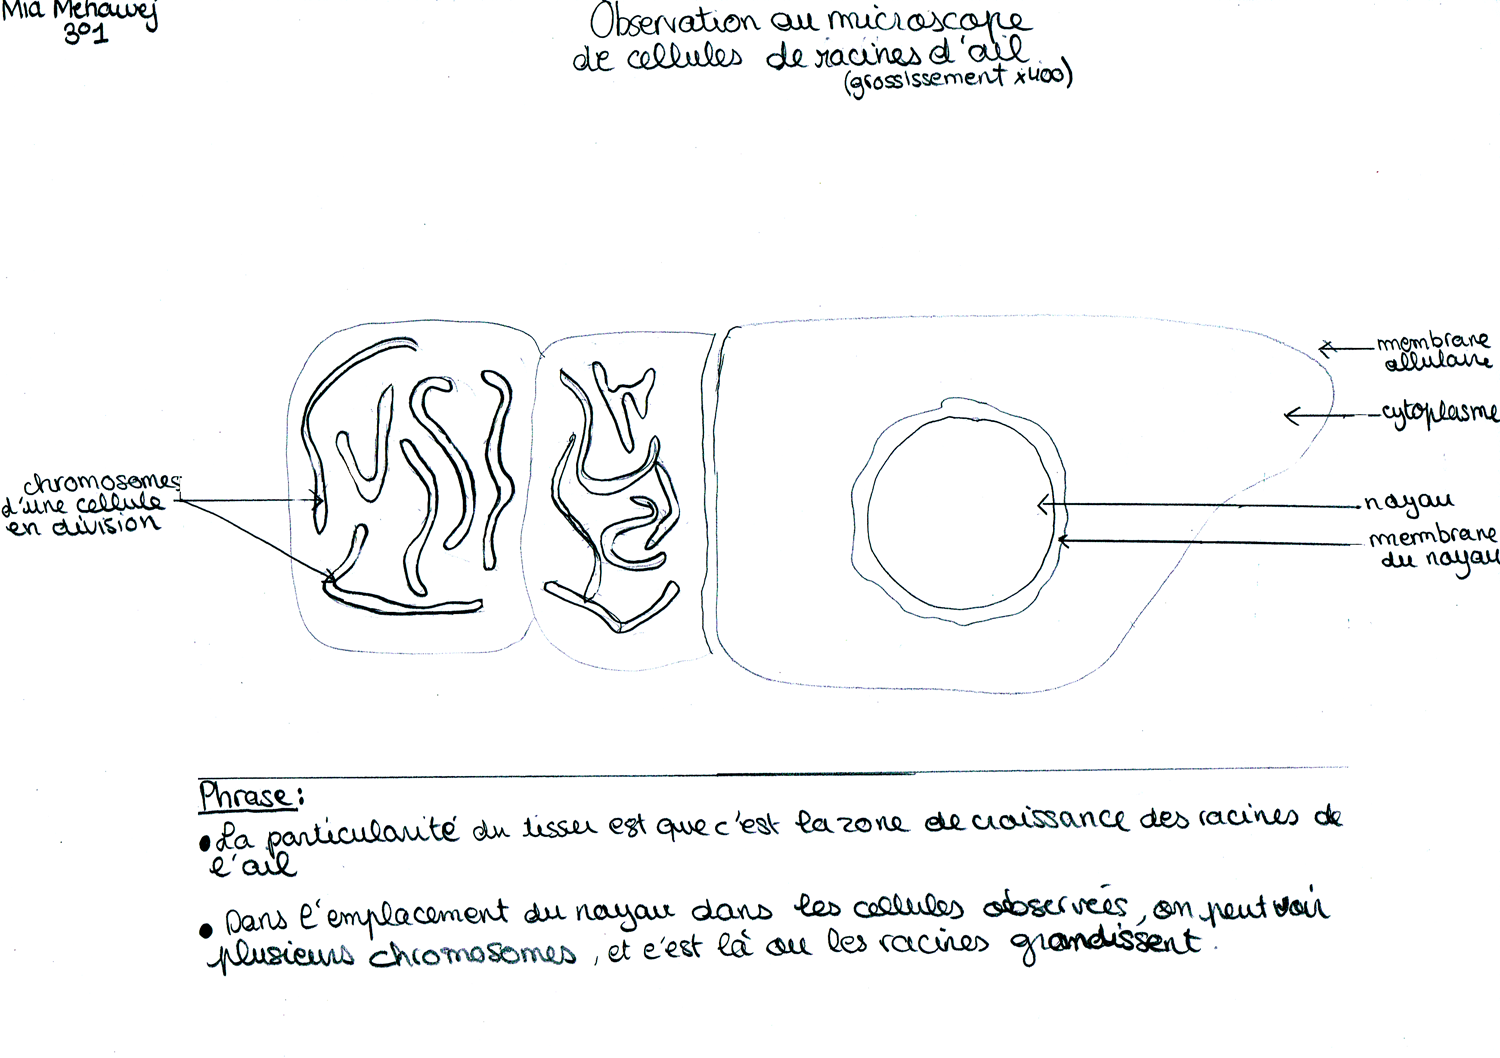 Mia Mehawej
301
Observation au microscope
de cellules de racines d'ail
(grossissement x400)
membrane
cellulaire
cytoplasme
chromosomes
d'une cellule
en division
noyau
membrane
du noyau
Phrase :
• La particularité du tissu est que c'est la zone de croissance des racines de
l'ail
• Dans l'emplacement du noyau dans les cellules observées, on peut voir
plusieurs chromosomes, et c'est là ou les racines grandissent.